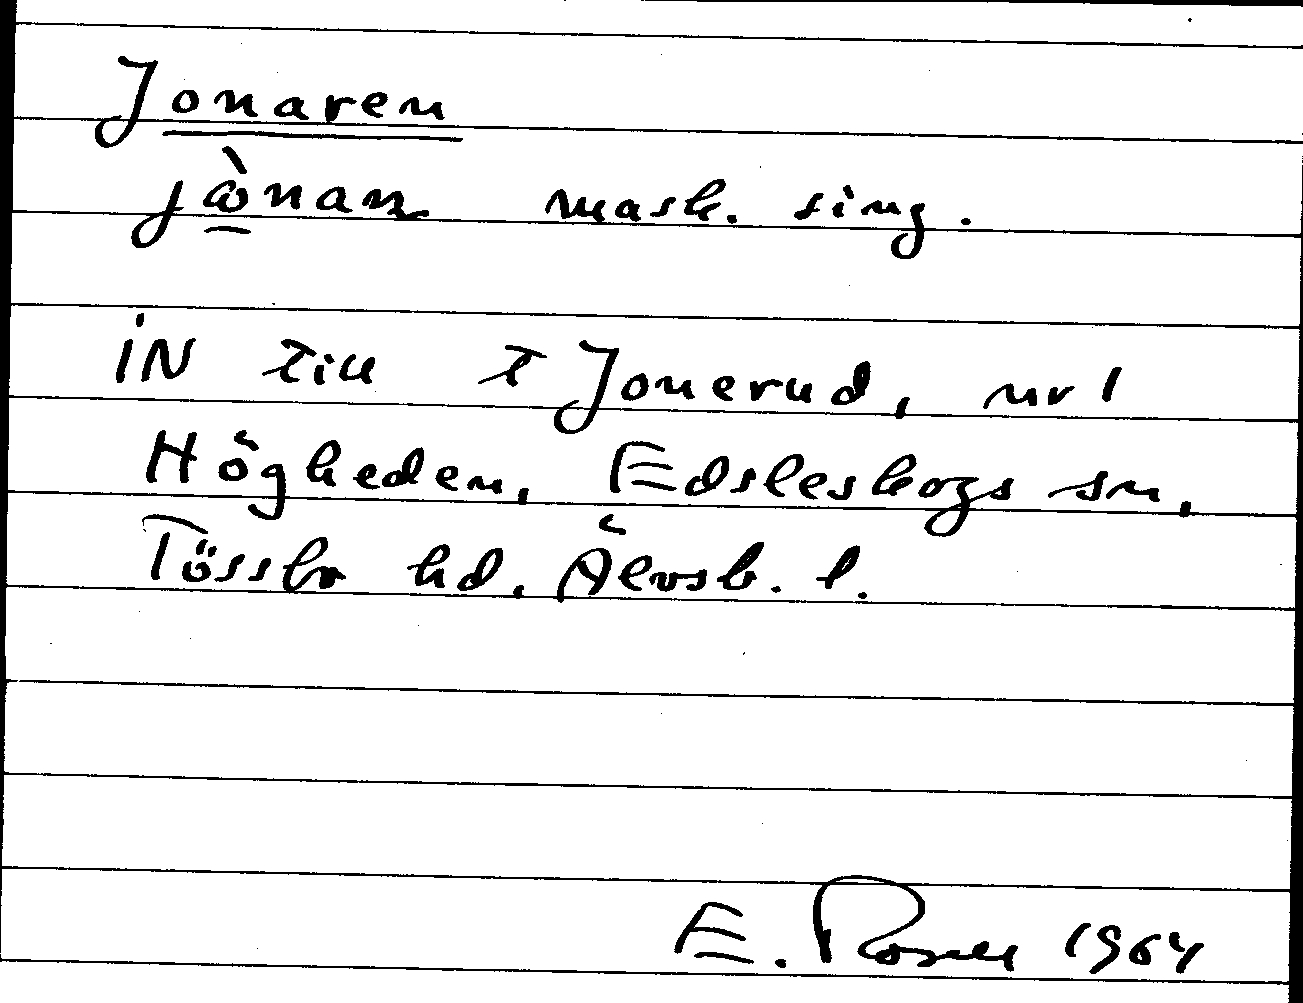 Jonaren
jònan mask. sing.
iN till t Jonerud, nr 1
Högheden, Edsleskogs sn,
Tössbo hd. Älvsb. l.
E. Rosell 1964